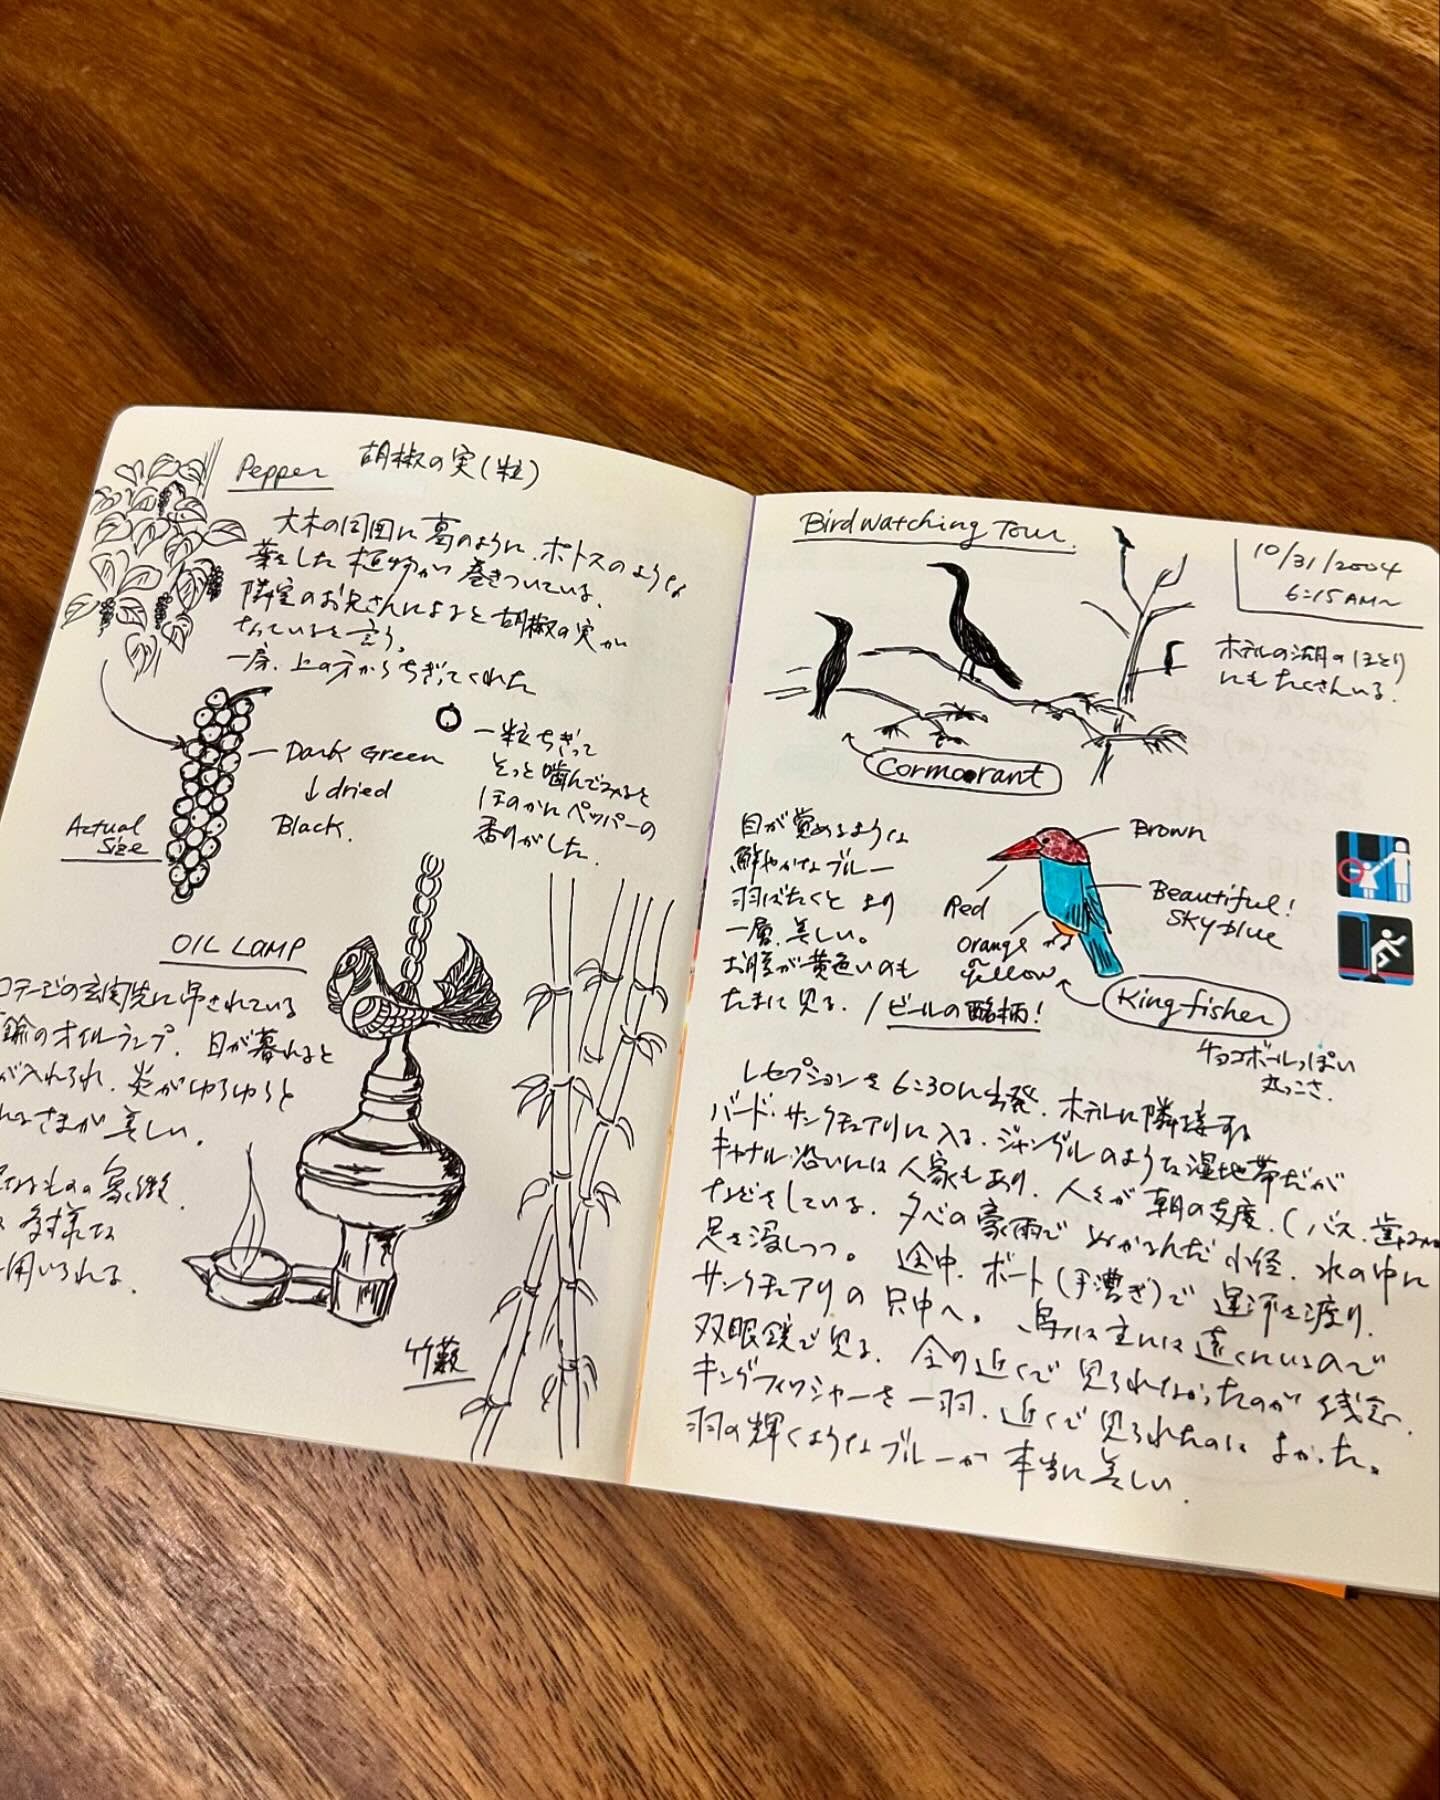 Pepper 胡椒の実(粒)
大木の周囲に葛のように、ポトスのような
葉をした植物が巻きついている。
隣室のお兄さんによると胡椒の実が
なっていると言う。
一房、上の方からちぎってくれた
Dark Green
↓dried
Black.
Actual
Size
一粒ちぎって
そっと噛んでみると
ほのかにペッパーの
香りがした。
OIL LAMP
コテージの玄関先に吊されている
鍮のオイルランプ。日が暮れると
が入れられ、炎がゆらゆらと
れるさまが美しい。
なるものの象徴
多様な
用いられる。
竹藪
Birdwatching Tour.
10/31/2004
6:15AM~
ホテルの湖のほとり
にもたくさんいる。
Cormorant
目が覚めるような
鮮やかなブルー
羽ばたくとより
一層、美しい。
お腹が黄色いのも
たまに見る。/ビールの銘柄!
Brown
Red
Beautiful!
Skyblue
Orange
~
Yellow
Kingfisher
チョコボールっぽい
丸っこさ。
レセプションを6:30に出発、ホテルに隣接する
バード・サンクチュアリに入る。ジャングルのような湿地帯だが
キャナル沿いには人家もあり、人々が朝の支度、(バス、歯みがき
などをしている。夕べの豪雨でぬかるんだ小径、水の中に
足を浸しつつ。途中、ボート(手漕ぎ)で運河を渡り、
サンクチュアリの只中へ。鳥は主には遠くにいるので
双眼鏡で見る。全り近くで見られなかったのが残念。
キングフィッシャーを一羽、近くで見られたのはよかった。
羽の輝くようなブルーが本当に美しい.